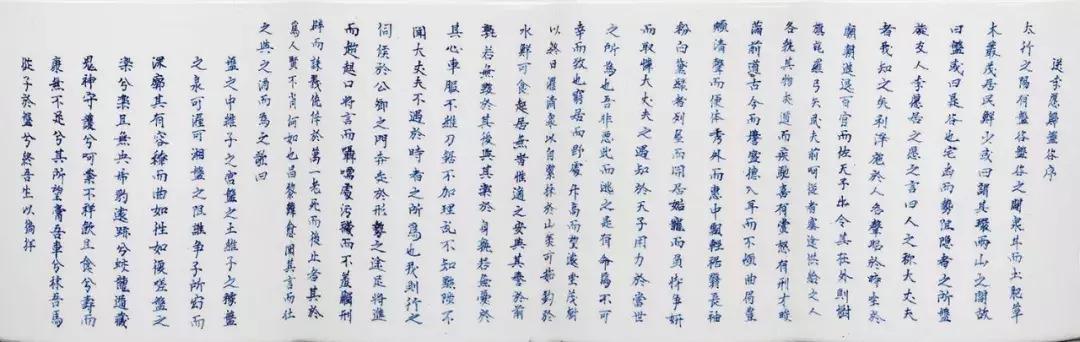 送李愿歸盤谷序
太行之陽有盤谷盤谷之間泉甘而土肥草
木叢茂居民鮮少或曰謂其環兩山之間故
曰盤或曰是谷也宅幽而勢阻隱者之所盤
旋友人李愿居之愿之言曰人之稱大丈夫
者我知之矣利澤施於人名聲昭於時坐於
廟朝進退百官而佐天子出令其在外則樹
旗旄羅弓矢武夫前呵從者塞途供給之人
各執其物夾道而疾馳喜有賞怒有刑才畯
滿前道古今而譽盛德入耳而不煩曲眉豐
頰清聲而便體秀外而惠中飄輕裾翳長袖
粉白黛綠者列屋而閒居妒寵而負恃爭妍
而取憐大丈夫之遇知於天子用力於當世
之所為也吾非惡此而逃之是有命焉不可
幸而致也窮居而野處升高而望遠坐茂樹
以終日濯清泉以自潔採於山美可茹釣於
水鮮可食起居無時惟適之安與其譽於前
孰若無毀於其後與其樂於身孰若無憂於
其心車服不維刀鋸不加理亂不知黜陟不
聞大丈夫不遇於時者之所為也我則行之
伺候於公卿之門奔走於形勢之途足將進
而趑趄口將言而囁嚅處污穢而不羞觸刑
辟而誅戮僥倖於萬一老死而後止者其於
為人賢不肖何如也昌黎韓愈聞其言而壯
之與之酒而為之歌曰
盤之中維子之宮盤之土維子之稼盤
之泉可濯可湘盤之阻誰爭子所窈而
深廓其有容繚而曲如往如復嗟盤之
樂兮樂且無央虎豹遠跡兮蛟龍遁藏
鬼神守護兮呵禁不祥飲且食兮壽而
康無不足兮其所望膏吾車兮秣吾馬
從子於盤兮終吾生以徜徉